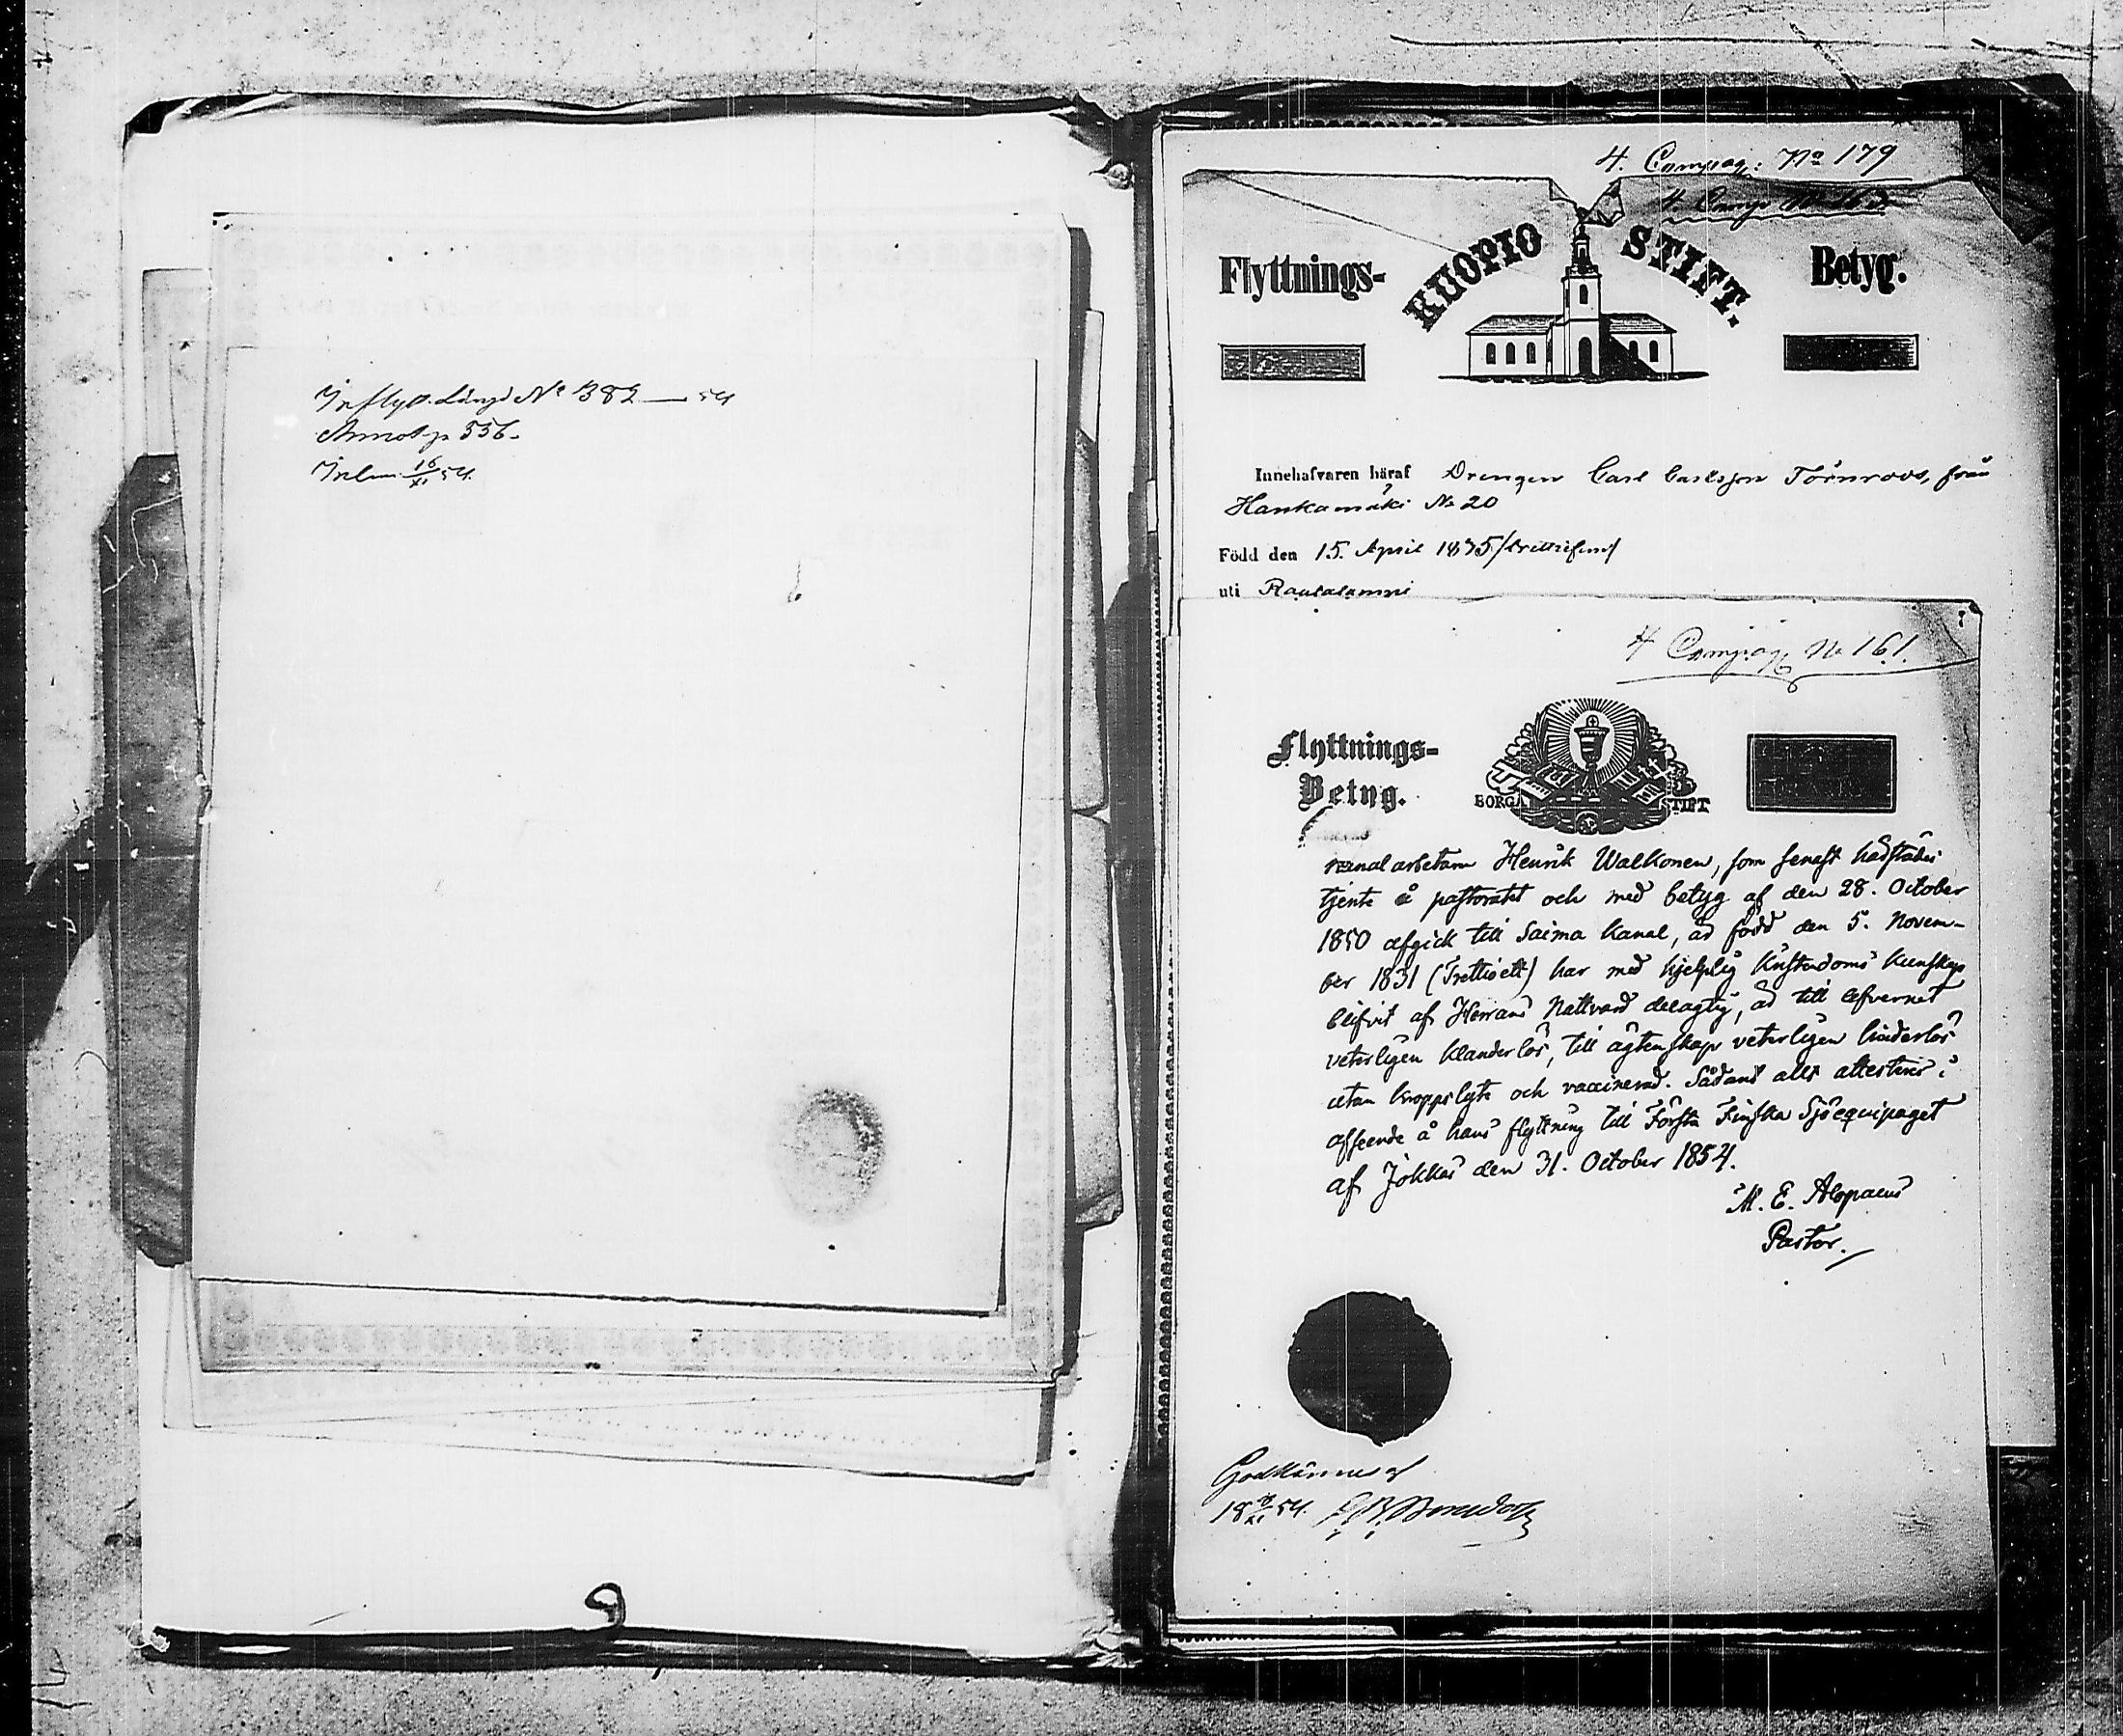 Inflytt. Längd No 382 — 54
Annot p 556.
Inlem 16/XI 54.
4. Compag: No 179
Flyttnings-
KUOPIO STIFT.
Betyg.
Innehafvaren häraf Drengen Carl Carlsson Törnroos, från
Hankamäki No 20
Född den 15. April 1835 /trettifem/
uti Rautalampi
4 Compag No 161.
Flyttnings-
Betyg.
BORGÅ STIFT
Kanalarbetarn Henrik Walkonen, som senast härstädes
tjente å pastoratet och med betyg af den 28. October
1850 afgick till Saima Kanal, är född den 5. Novem-
ber 1831 (Trettioett) har med hjelplig Kristendoms kunskap
blifvit af Herrans Nattvard delagtig, är till lefvernet
veterligen klanderlös, till ägtenskap veterligen hinderlös
utan kroppslyte och vaccinerad. Sådant allt attesteras i
afseende å hans flyttning till Första Finska Sjöequipaget
af Jokkas den 31. October 1854.
M. E. Alopaeus
Pastor.
Godkännes af
18 /XI 54.